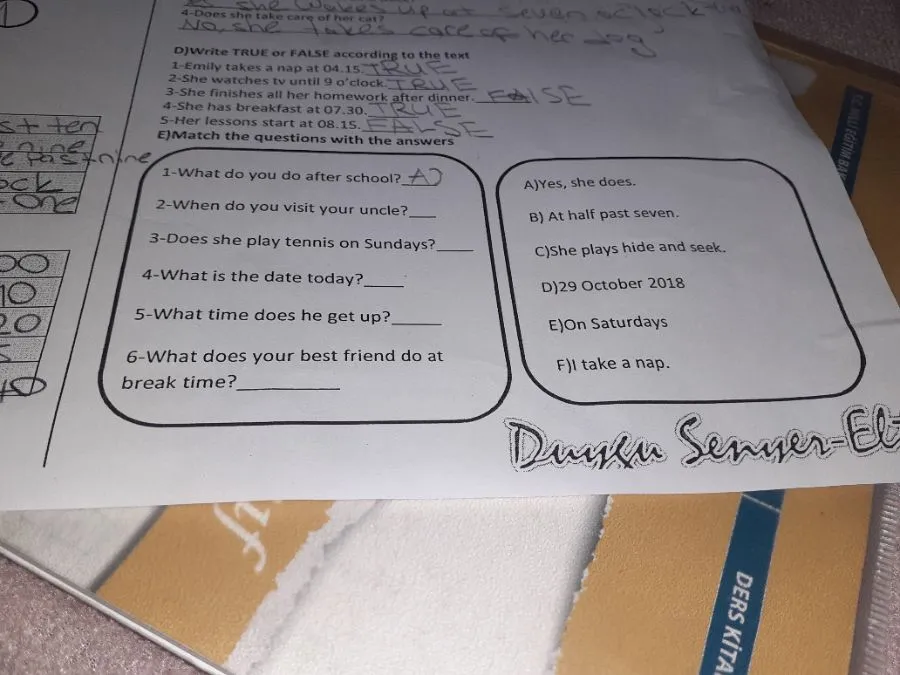 she wakes up at seven o'clock
4-Does she take care of her cat?
No, she takes care of her dog
D)Write TRUE or FALSE according to the text
1-Emily takes a nap at 04.15. TRUE
2-She watches tv until 9 o'clock. TRUE
3-She finishes all her homework after dinner. FALSE
4-She has breakfast at 07.30. TRUE
5-Her lessons start at 08.15. FALSE
E)Match the questions with the answers
1-What do you do after school? A)
2-When do you visit your uncle?___
3-Does she play tennis on Sundays?____
4-What is the date today?____
5-What time does he get up?_____
6-What does your best friend do at
break time?__________
A)Yes, she does.
B) At half past seven.
C)She plays hide and seek.
D)29 October 2018
E)On Saturdays
F)I take a nap.
Duygu Senyer-Elt
st ten
nine
past nine
ock
one
00
10
20
DERS KİTA